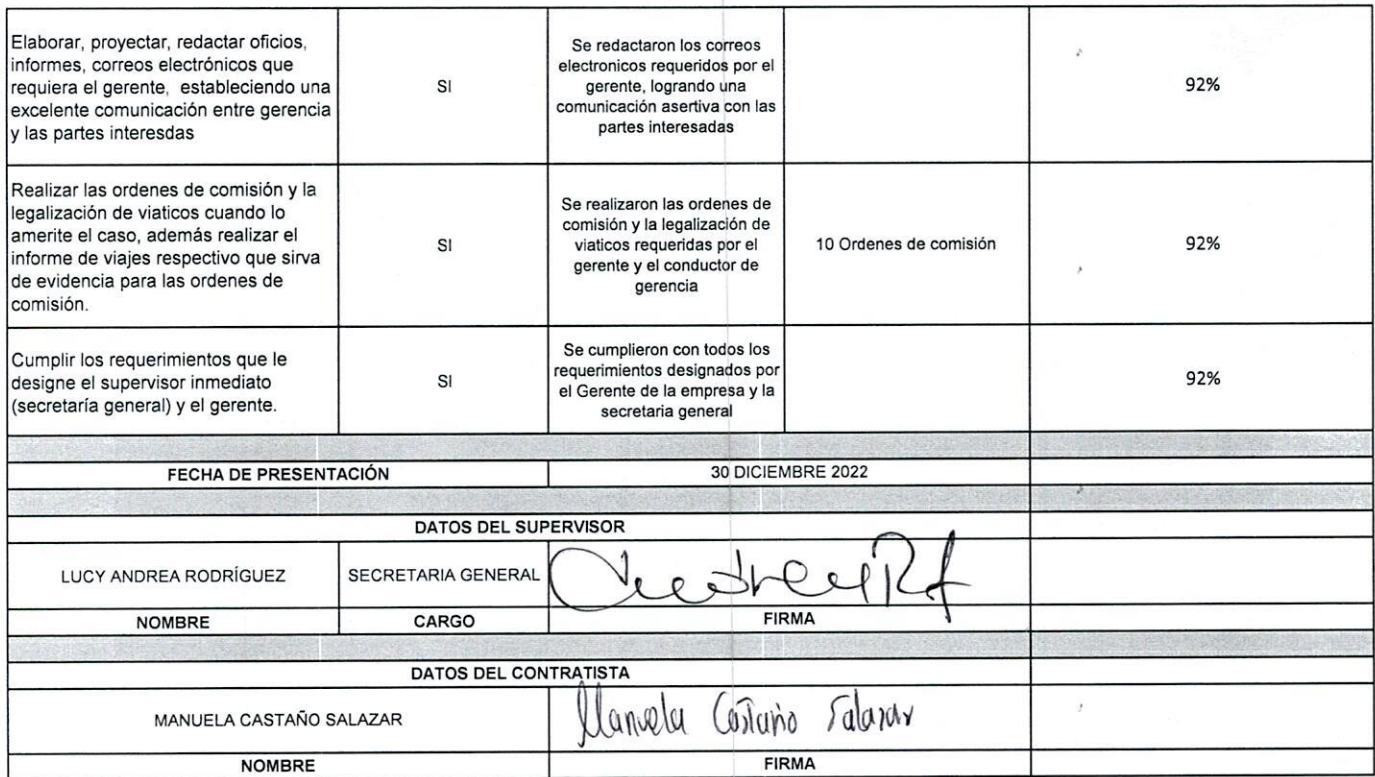 Elaborar, proyectar, redactar oficios,
informes, correos electrónicos que
requiera el gerente, estableciendo una
excelente comunicación entre gerencia
y las partes interesdas
SI
Se redactaron los correos
electronicos requeridos por el
gerente, logrando una
comunicación asertiva con las
partes interesadas
92%
Realizar las ordenes de comisión y la
legalización de viaticos cuando lo
amerite el caso, además realizar el
informe de viajes respectivo que sirva
de evidencia para las ordenes de
comisión.
SI
Se realizaron las ordenes de
comisión y la legalización de
viaticos requeridas por el
gerente y el conductor de
gerencia
10 Ordenes de comisión
92%
Cumplir los requerimientos que le
designe el supervisor inmediato
(secretaría general) y el gerente.
SI
Se cumplieron con todos los
requerimientos designados por
el Gerente de la empresa y la
secretaria general
92%
FECHA DE PRESENTACIÓN
30 DICIEMBRE 2022
DATOS DEL SUPERVISOR
LUCY ANDREA RODRÍGUEZ
SECRETARIA GENERAL
NOMBRE
CARGO
FIRMA
DATOS DEL CONTRATISTA
MANUELA CASTAÑO SALAZAR
Manuela Castaño Salazar
NOMBRE
FIRMA